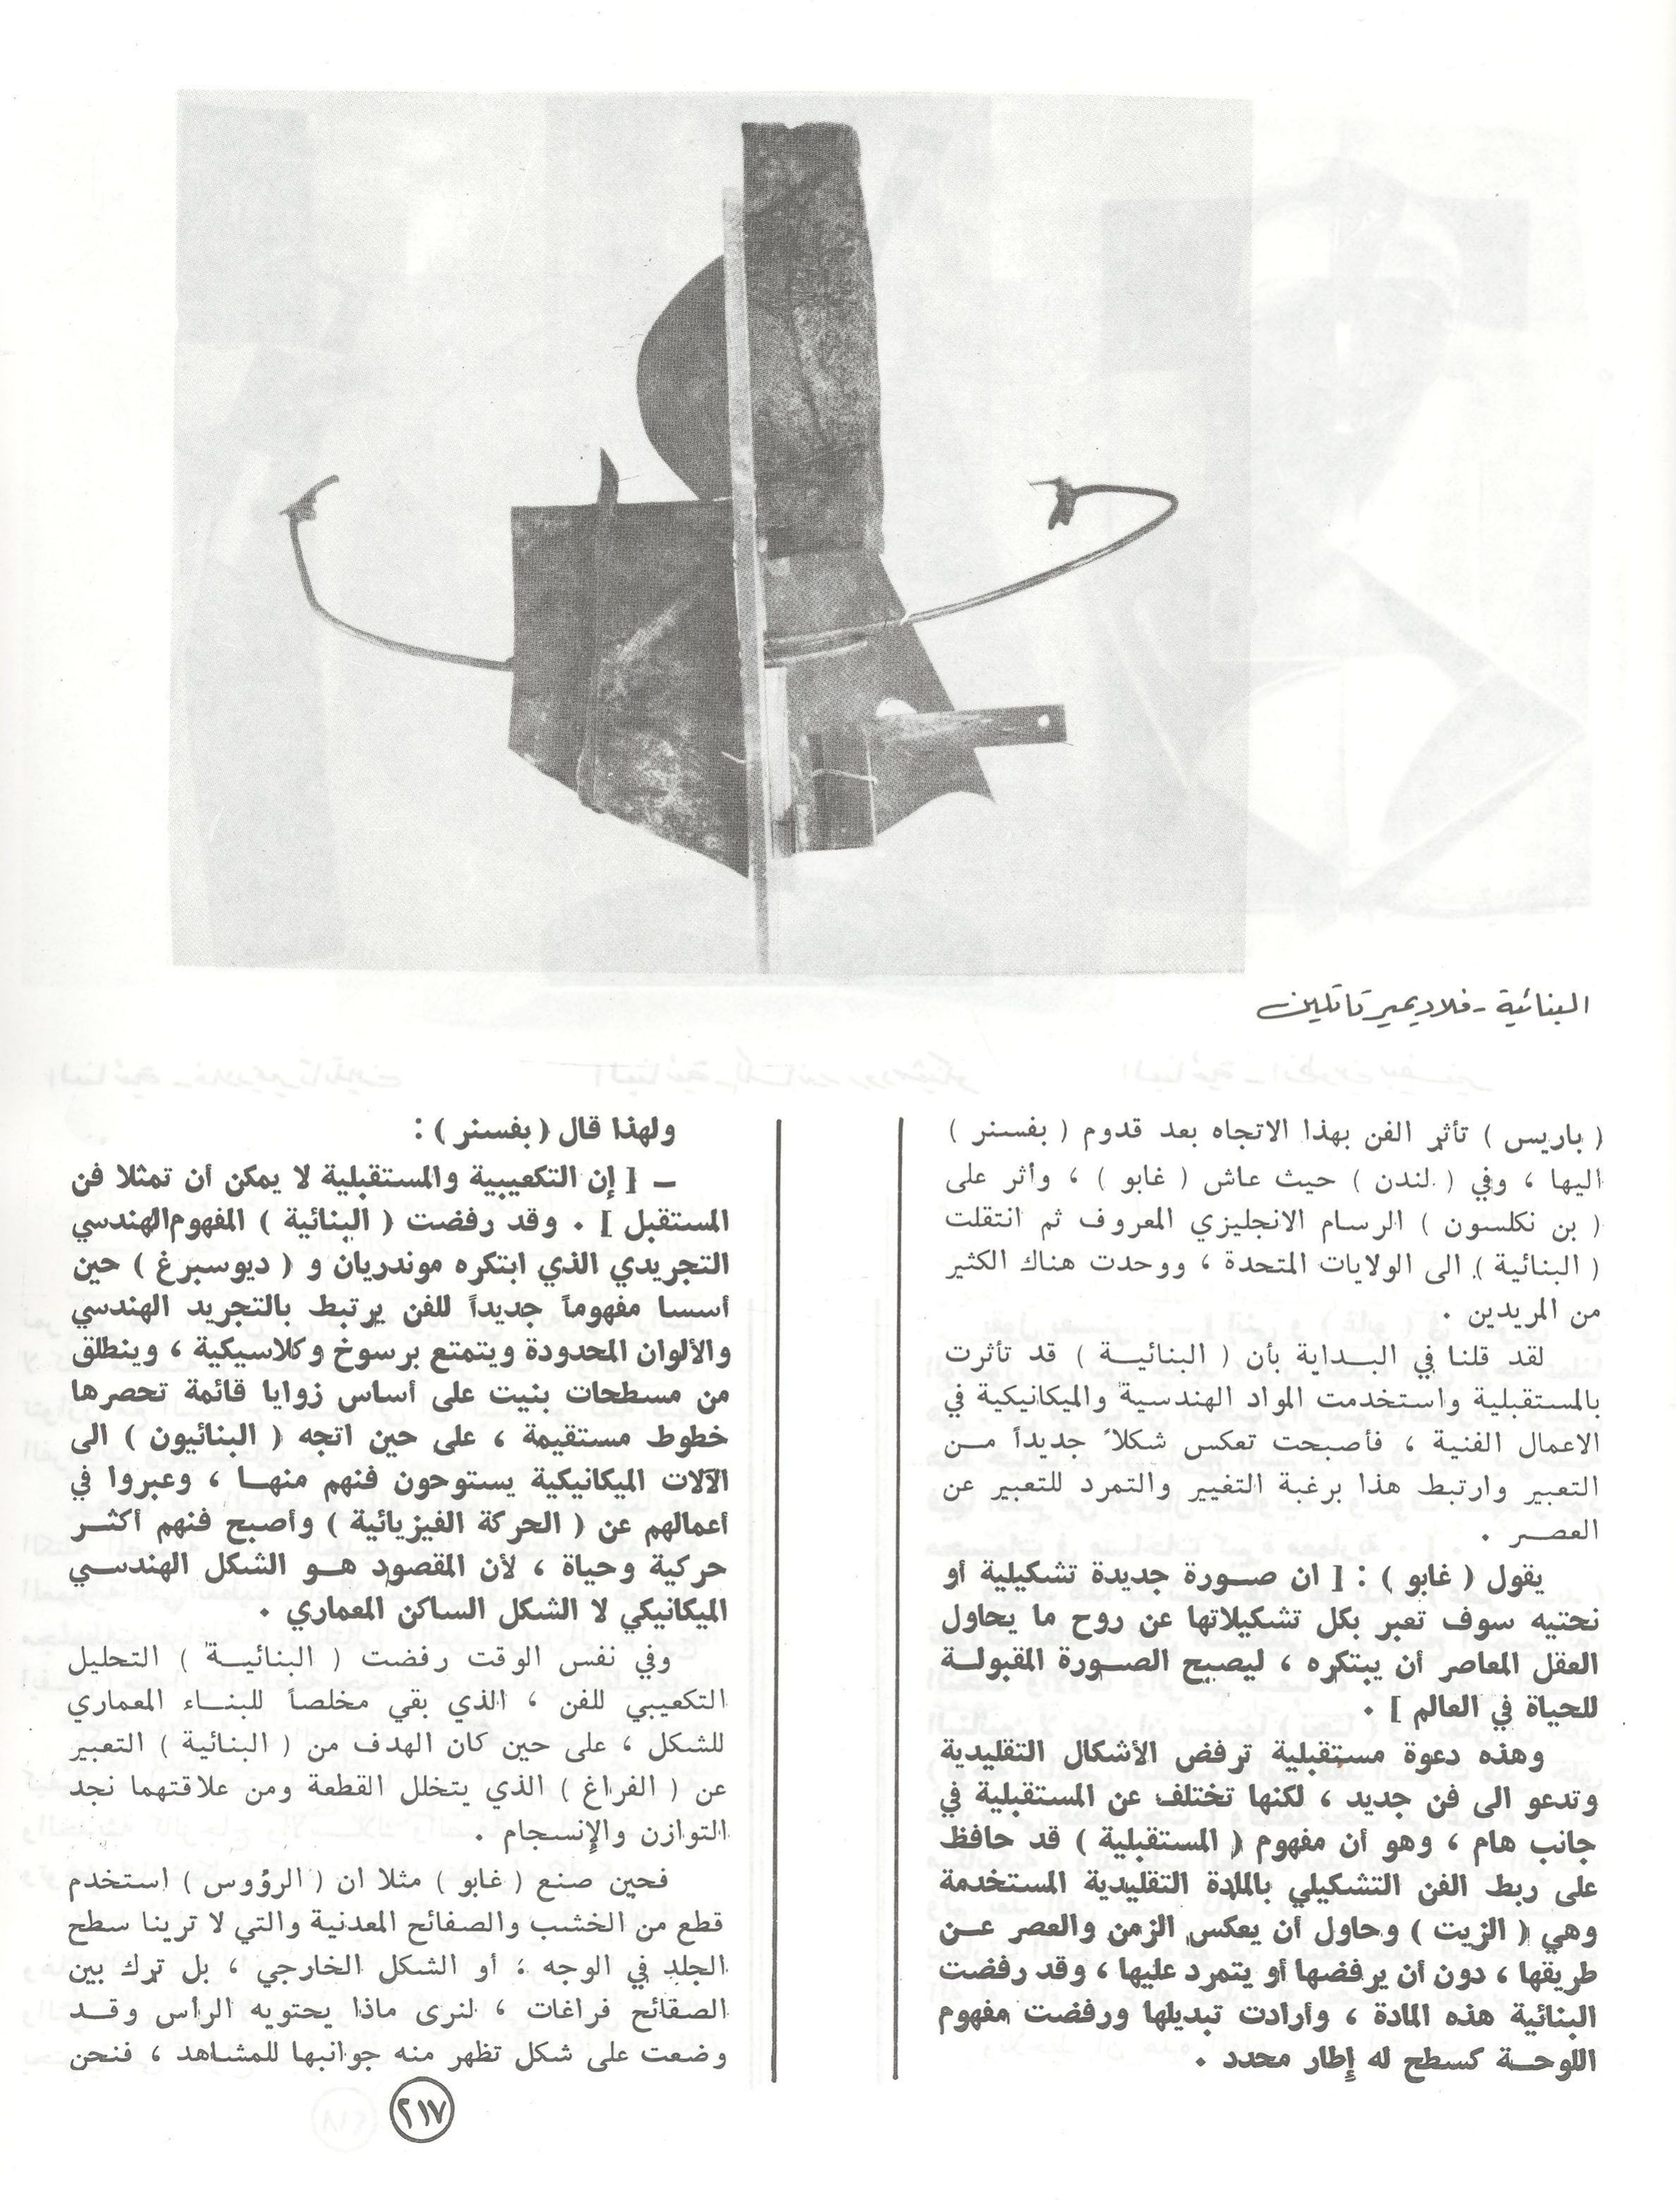 البنائية - فلاديمير تاتلين
( باريس ) تأثر الفن بهذا الاتجاه بعد قدوم ( بفسنر )
اليها ، وفي ( لندن ) حيث عاش ( غابو ) ، وأثر على
( بن نكلسون ) الرسام الانجليزي المعروف ثم انتقلت
( البنائية ) الى الولايات المتحدة ، ووحدت هناك الكثير
من المريدين .
لقد قلنا في البداية بأن ( البنائية ) قد تأثرت
بالمستقبلية واستخدمت المواد الهندسية والميكانيكية في
الاعمال الفنية ، فأصبحت تعكس شكلاً جديداً من
التعبير وارتبط هذا برغبة التغيير والتمرد للتعبير عن
العصر .
يقول ( غابو ) : [ ان صورة جديدة تشكيلية أو
نحتيه سوف تعبر بكل تشكيلاتها عن روح ما يحاول
العقل المعاصر أن يبتكره ، ليصبح الصورة المقبولة
للحياة في العالم ] .
وهذه دعوة مستقبلية ترفض الأشكال التقليدية
وتدعو الى فن جديد ، لكنها تختلف عن المستقبلية في
جانب هام ، وهو أن مفهوم ( المستقبلية ) قد حافظ
على ربط الفن التشكيلي بالمادة التقليدية المستخدمة
وهي ( الزيت ) وحاول أن يعكس الزمن والعصر عن
طريقها ، دون أن يرفضها أو يتمرد عليها ، وقد رفضت
البنائية هذه المادة ، وأرادت تبديلها ورفضت مفهوم
اللوحة كسطح له إطار محدد .
ولهذا قال ( بفسنر ) :
– [ إن التكعيبية والمستقبلية لا يمكن أن تمثلا فن
المستقبل ] . وقد رفضت ( البنائية ) المفهوم الهندسي
التجريدي الذي ابتكره موندريان و ( ديوسبرغ ) حين
أسسا مفهوماً جديداً للفن يرتبط بالتجريد الهندسي
والألوان المحدودة ويتمتع برسوخ وكلاسيكية ، وينطلق
من مسطحات بنيت على أساس زوايا قائمة تحصرها
خطوط مستقيمة ، على حين اتجه ( البنائيون ) الى
الآلات الميكانيكية يستوحون فنهم منها ، وعبروا في
أعمالهم عن ( الحركة الفيزيائية ) وأصبح فنهم أكثر
حركية وحياة ، لأن المقصود هو الشكل الهندسي
الميكانيكي لا الشكل الساكن المعماري .
وفي نفس الوقت رفضت ( البنائية ) التحليل
التكعيبي للفن ، الذي بقي مخلصاً للبناء المعماري
للشكل ، على حين كان الهدف من ( البنائية ) التعبير
عن ( الفراغ ) الذي يتخلل القطعة ومن علاقتهما نجد
التوازن والإنسجام .
فحين صنع ( غابو ) مثلا ان ( الرؤوس ) استخدم
قطع من الخشب والصفائح المعدنية والتي لا ترينا سطح
الجلد في الوجه ؛ أو الشكل الخارجي ، بل ترك بين
الصفائح فراغات ، لنرى ماذا يحتويه الرأس وقد
وضعت على شكل تظهر منه جوانبها للمشاهد ، فنحن
٢١٧